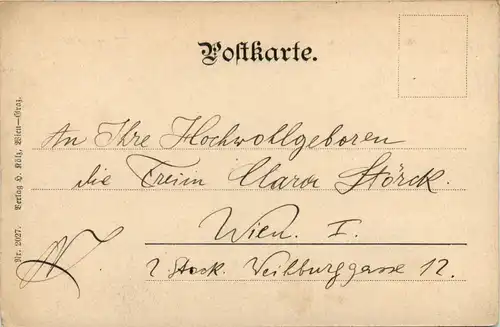 Postkarte.
An Ihre Hochwohlgeboren
die Freiin Clara Störck.
Wien. I.
2 Stock. Weilburggasse 12.
Nr. 2027. Verlag O. Kölz, Wien—Graz.